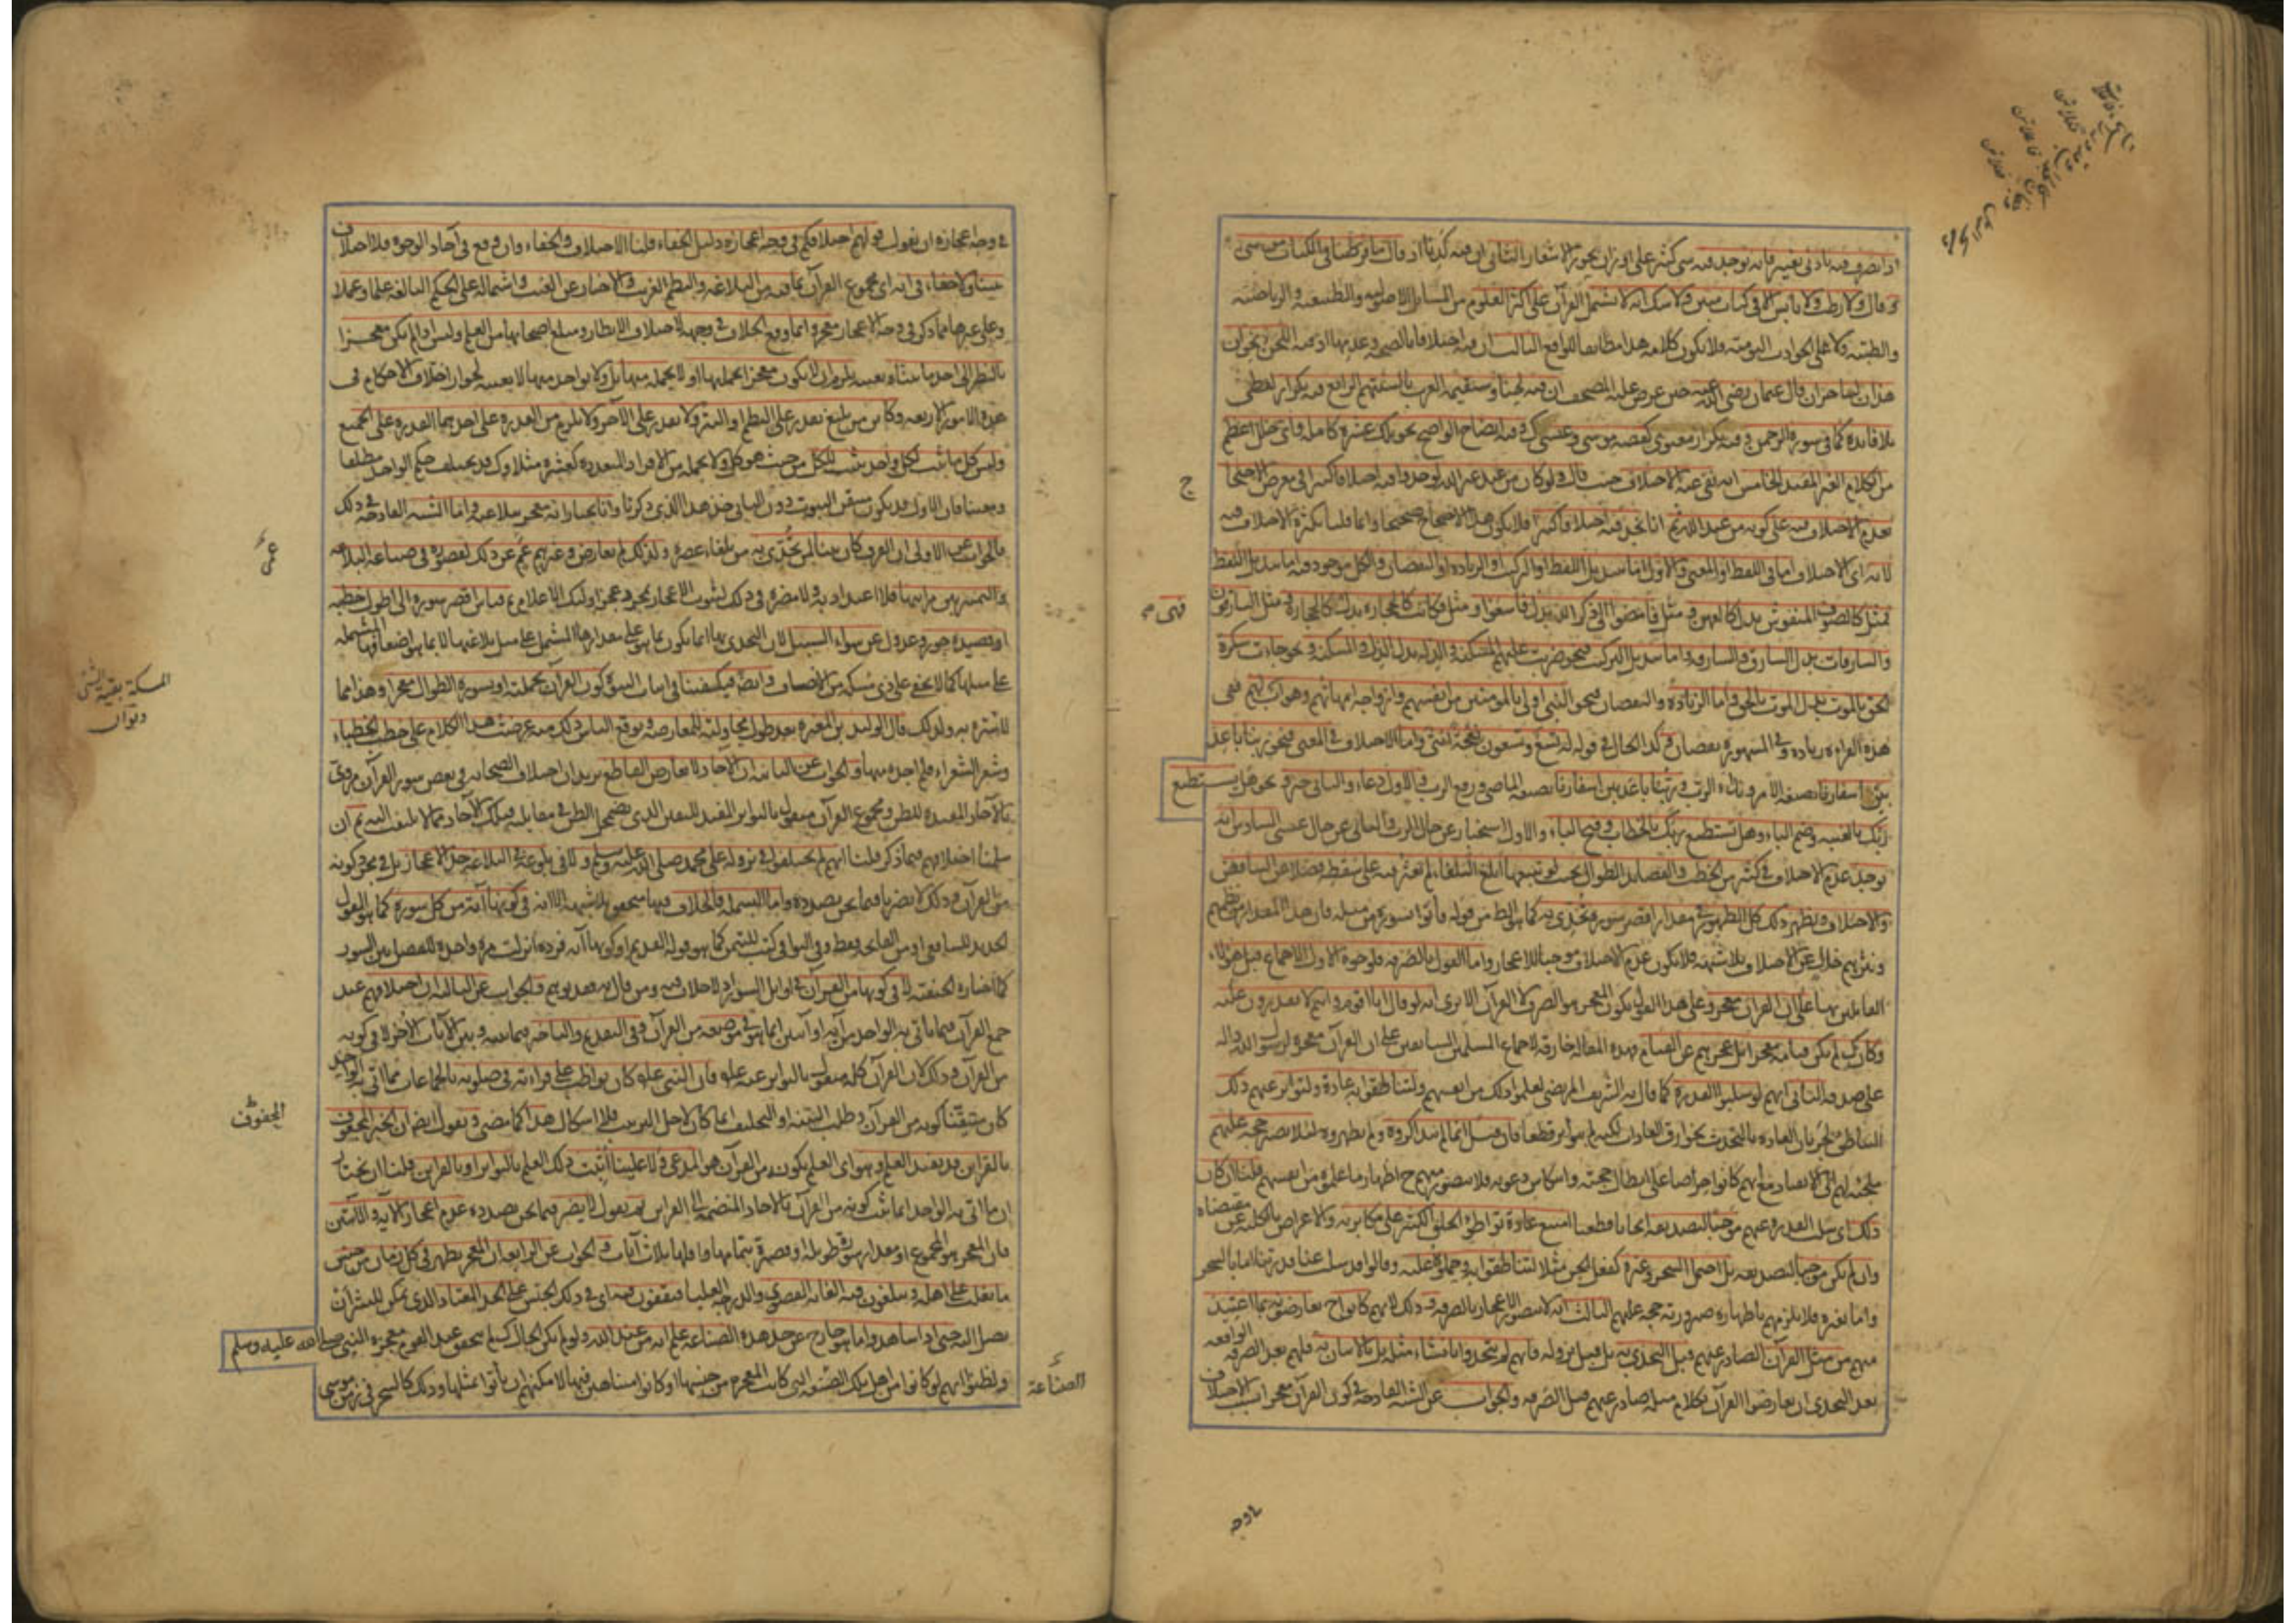 اذا تصرف فيه بادنى تغيير فانه يوجد فيه شئ كثير على اوزان بحور الاشعار الثانى ان فيه كذبا اذ قال ما فرطنا فى الكتاب من شئ
وقال ولا رطب ولا يابس الا فى كتاب مبين ولا شك انه لا يشتمل القرآن على اكثر العلوم من المسائل الاصولية والطبيعية والرياضية
والطبية ولا على الحوادث اليومية فلا يكون كلامه هذا مطابقا للواقع الثالث ان فيه اختلافا بالصحة وعدمها اذ فيه اللحن نحو ان
هذان لساحران قال عثمان رضى الله عنه حين عرض عليه المصحف ان فيه لحنا وستقيمه العرب بالسنتهم الرابع فيه تكرار لفظى
بلا فائدة كما فى سورة الرحمن وفيه تكرار معنوى كقصة موسى وعيسى كذلك وفيه ايضاح الواضح نحو تلك عشرة كاملة فاى خلل اعظم
من الكلام الغير المفيد الخامس انه نفى عنه الاختلاف حيث قال ولو كان من عند غير الله لوجدوا فيه اختلافا كثيرا فى معرض الاحتجاج
ج
بعدم الاختلاف فيه على كونه من عند الله ثم انا نجد فيه اختلافا كثيرا فلا يكون هذا الاحتجاج صحيحا وانما قلنا بكثرة الاختلاف فيه
لانه اى الاختلاف اما فى اللفظ او المعنى والاول اما بتبديل اللفظ او التركيب او الزيادة او النقصان والكل موجود فيه اما تبديل اللفظ
فمثل كالصوف المنفوش بدل كالعهن ومثل فامضوا الى ذكر الله بدل فاسعوا ومثل فكانت كالحجارة بدل فهى كالحجارة ومثل السارقون
فهى
والسارقات بدل السارق والسارقة واما تبديل التركيب فنحو ضربت عليهم المسكنة والذلة بدل الذلة والمسكنة ونحو جاءت سكرة
الحق بالموت بدل الموت بالحق واما الزيادة والنقصان فنحو النبى اولى بالمؤمنين من انفسهم وازواجه امهاتهم وهو اب لهم ففى
هذه القراءة زيادة وفى المشهورة نقصان وكذا الحال فى قوله له تسع وتسعون نعجة انثى واما الاختلاف فى المعنى فنحو ربنا باعد
بين اسفارنا بصيغة الامر ونداء الرب وربنا باعد بين اسفارنا بصيغة الماضى ورفع الرب والاول دعاء والثانى خبر ونحو هل يستطيع
ربك بالغيبة وضم الباء وهل تستطيع ربك بالخطاب وفتح الباء والاول استخبار عن حال الرب والثانى عن حال عيسى السادس انه
يوجد عدم الاختلاف فى كثير من الخطب والقصائد الطوال بحيث لو تتبعها ابلغ البلغاء لم يعثر فيه على سقطة فضلا عن التناقض
والاختلاف ويظهر ذلك كل الظهور فى مقدار اقصر سورة تحدى به كما هو الظاهر من قوله فأتوا بسورة من مثله فان هذا المقدار من نظمهم
ونثرهم خال عن الاختلاف بلا شبهة فلا يكون عدم الاختلاف موجبا للاعجاز واما القول بالصرفة فلوجوه الاول الاجماع قبل هؤلاء
القائلين بها على ان القرآن معجز وعلى هذا القول يكون المعجز هو الصرف لا القرآن الا يرى انه لو قال انا اقوم وانتم لا تقدرون عليه
وكان كذلك لم يكن قيامه معجزا بل عجزهم عن القيام فهذه المقالة خارقة لاجماع المسلمين السابقين على ان القرآن معجزة لرسول الله دالة
على صدقه الثانى انهم لو سلبوا القدرة كما قال به الشريف المرتضى لعلموا ذلك من انفسهم ولتناطقوا به عادة ولتواتر عنهم ذلك
التناطق لجريان العادة بالتحدث بخوارق العادات لكنه لم يتواتر قطعا فان قيل انما لم يتذاكروه ولم يظهروه لئلا يصير حجة عليهم
ملجئة لهم الى الانقياد مع انهم كانوا حراصا على ابطال حجته وانتكاس دعوته فلا يتصور منهم ح اظهار ما علموه من انفسهم قلنا ان كان
ذلك اى سلب القدرة عنهم موجبا لتصديقه ايجابا قطعيا امتنع عادة تواطؤ الخلق الكثير على مكابرته والاعراض بالكلية عن مقتضاه
وان لم يكن موجبا لتصديقه بل احتمل السحر وغيره كفعل الجن مثلا لتناطقوا به وحملوه عليه وقالوا قد سلب عنا قدرتنا اما بالسحر
واما بغيره فلا يلزمهم باظهاره صيرورته حجة عليهم الثالث انه لا يتصور الاعجاز بالصرفة وذلك لانهم كانوا ح يعارضونه بما اعتيد
منهم من مثل القرآن الصادر عنهم قبل التحدى به بل قبل نزوله فانهم لم يتحدوا بانشاء مثله بل بالاتيان به فلهم بعد الصرفة الواقعة
بعد التحدى ان يعارضوا القرآن بكلام مثله صادر عنهم قبل الصرفة والجواب عن الشبه القادحة فى كون القرآن معجزا بسبب الاختلاف
فى وجه اعجازه ان نقول قولهم اختلافكم فى وجه اعجازه دليل الخفاء قلنا الاختلاف والخفاء وان وقع فى آحاد الوجوه فلا اختلاف
بيننا ولا خفاء فى انه اى مجموع القرآن بما فيه من البلاغة والنظم الغريب والاخبار عن الغيب واشتماله على الحكم البالغة علما وعملا
وعلى غيرها مما ذكر فى وجه الاعجاز معجز وانما وقع الخلاف فى وجهه لاختلاف الانظار ومبلغ اصحابها من العلم وليس اذا لم يكن معجزا
بالنظر الى احد ما بيناه بعينه يلزم ان لا يكون معجزا بجملتها او لا بجملة منها بل ولا بواحد منها لا بعينه لجواز اختلاف الاحكام فى
هذه الامور الاربعة وكاين من بليغ يقدر على النظم او النثر ولا يقدر على الآخر ولا يلزم من القدرة على احدهما القدرة على الجميع
وليس كل ما يثبت لكل واحد يثبت للكل من حيث هو كل ولا بجملة من الافراد المتعددة كعشرة مثلا
والجواب عن الاولى ان الفرق كان بينا لمن تحدى به من بلغاء عصره ولذلك لم يعارض وغيرهم عم عن ذلك لقصوره فى صناعة البلاغة
عم
او قصيدة جور وعدول عن سواء السبيل لان التحدى بها انما يكون بما هو على مقدارها المشتمل على مثل بلاغتها
على مثلها كما لا يخفى على ذى مسكة من الانصاف وايضا فيكفينا فى اثبات النبوة كون القرآن بجملته او بسورة الطوال معجزا وهذا مما
المسكة بقية الشئ
لا سترة به ولذلك قال الوليد بن المغيرة بعد طول محاولته للمعارضة وتوقع الناس ذلك منه عرضت هذا الكلام على خطب الخطباء
وشعر الشعراء فلم اجده منها والجواب عن الثانية ان الآحاد لا تعارض القاطع يريد ان اختلاف الصحابة فى بعض سور القرآن مروى
بالآحاد المفيدة للظن ومجموع القرآن منقول بالتواتر المفيد لليقين الذى يضمحل الظن فى مقابلته فتلك الآحاد مما لا يلتفت اليه ثم ان
سلمنا اختلافهم فيما ذكر قلنا انهم لم يختلفوا فى نزوله على محمد صلى الله عليه وسلم ولا فى بلوغه فى البلاغة حد الاعجاز بل فى مجرد كونه
من القرآن وذلك لا يضرنا فيما نحن بصدده واما البسملة فالخلاف فيها متحقق بلا شبهة الا انه فى كونها آية من كل سورة كما هو القول
الجديد للشافعى او من الفاتحة فقط وفى البواقى كتبت للتيمن كما هو قوله القديم او كونها آية فردة انزلت مرة واحدة للفصل بين السور
كما اختاره الحنفية لا فى كونها من القرآن فى اوائل السور اذ لا خلاف فيه ومن قال به فقد توهم والجواب عن الثالثة ان اختلافهم عند
جمع القرآن فيما يأتى به الواحد من آية او آيتين انما هو فى موضعه من القرآن وفى التقديم والتأخير فيما بينه وبين الآيات الاخر لا فى كونه
من القرآن وذلك لان القرآن كله منقول بالتواتر عنه علم فان النبى علم كان يواظب على قراءته فى صلوته بالجماعات فما اتى به الواحد
كان متيقنا كونه من القرآن وطلب البينة او التحليف انما كان لاجل الترتيب فلا اشكال هذا كما مضى ونقول ايضا ان الخبر المحفوف
المحفوف
بالقراين قد يفيد العلم وهو اى العلم بكونه من القرآن هو المدعى ولا علينا ان يثبت ذلك العلم بالتواتر او بالقراين فلنا ان نختار
ان ما اتى به الواحد انما ثبت كونه من القرآن بالآحاد المنضمة الى القراين ثم نقول لا يضر فيما نحن بصدده عدم اعجاز الآية والآيتين
فان المعجز هو المجموع او مقدار سورة طويلة او قصيرة بتمامها واقلها ثلاث آيات والجواب عن الرابعة ان المعجز يظهر فى كل زمان من جنس
ما يغلب على اهله ويبلغون فيه الغاية القصوى والدرجة العليا فيقفون فيه اى فى ذلك الجنس على الحد المعتاد الذى يمكن للبشر ان
يصل اليه حتى اذا شاهدوا ما هو خارج عن حد هذه الصناعة علم انه من عند الله ولو لم يكن الحال كذلك لم يتحقق عند القوم معجزة النبى صلى الله عليه وسلم
ولظنوا انهم لو كانوا من اهل تلك الصنعة التى كانت المعجزة من جنسها او كانوا متناهين فيها لامكنهم ان يأتوا بمثلها وذلك كالسحر فى زمن موسى
الصناعة